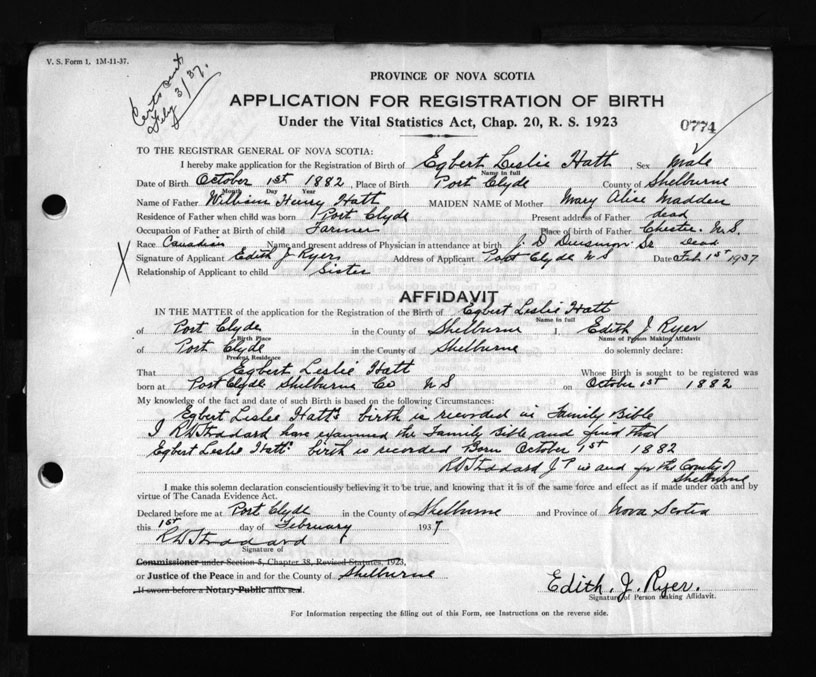 V. S. Form 1. 1M-11-37.
Certs sent
Feby 3/37.
PROVINCE OF NOVA SCOTIA
APPLICATION FOR REGISTRATION OF BIRTH
Under the Vital Statistics Act, Chap. 20, R. S. 1923
0774
TO THE REGISTRAR GENERAL OF NOVA SCOTIA:
I hereby make application for the Registration of Birth of Egbert Leslie Hatt, Sex Male
Name in full
Date of Birth October 1st 1882, Place of Birth Port Clyde County of Shelburne
Month Day Year
Name of Father William Henry Hatt MAIDEN NAME of Mother Mary Alice Madden
Residence of Father when child was born Port Clyde Present address of Father dead
Occupation of Father at Birth of child Farmer Place of birth of Father Chester N.S.
Race Canadian Name and present address of Physician in attendance at birth J. D. Sr dead
Signature of Applicant Edith J Ryer Address of Applicant Port Clyde N S Date Feb 1st 1937
Relationship of Applicant to child Sister
X
AFFIDAVIT
IN THE MATTER of the application for the Registration of the Birth of Egbert Leslie Hatt
Name in full
of Port Clyde in the County of Shelburne I, Edith J Ryer
Birth Place Name of Person Making Affidavit
of Port Clyde in the County of Shelburne do solemnly declare:
Present Residence
That Egbert Leslie Hatt Whose Birth is sought to be registered was
born at Port Clyde Shelburne Co N S on October 1st 1882
My knowledge of the fact and date of such Birth is based on the following Circumstances:
Egbert Leslie Hatt's birth is recorded in Family Bible
I R W Stoddard have examined the Family Bible and find that
Egbert Leslie Hatt's birth is recorded Born October 1st 1882
R W Stoddard J P in and for the County of
Shelburne
I make this solemn declaration conscientiously believing it to be true, and knowing that it is of the same force and effect as if made under oath and by
virtue of The Canada Evidence Act.
Declared before me at Port Clyde in the County of Shelburne and Province of Nova Scotia
this 1st day of February 1937
R W Stoddard
Signature of
Commissioner under Section 5, Chapter 38, Revised Statutes, 1923,
or Justice of the Peace in and for the County of Shelburne
If sworn before a Notary Public affix seal.
Edith. J. Ryer.
Signature of Person making Affidavit.
For Information respecting the filling out of this Form, see Instructions on the reverse side.